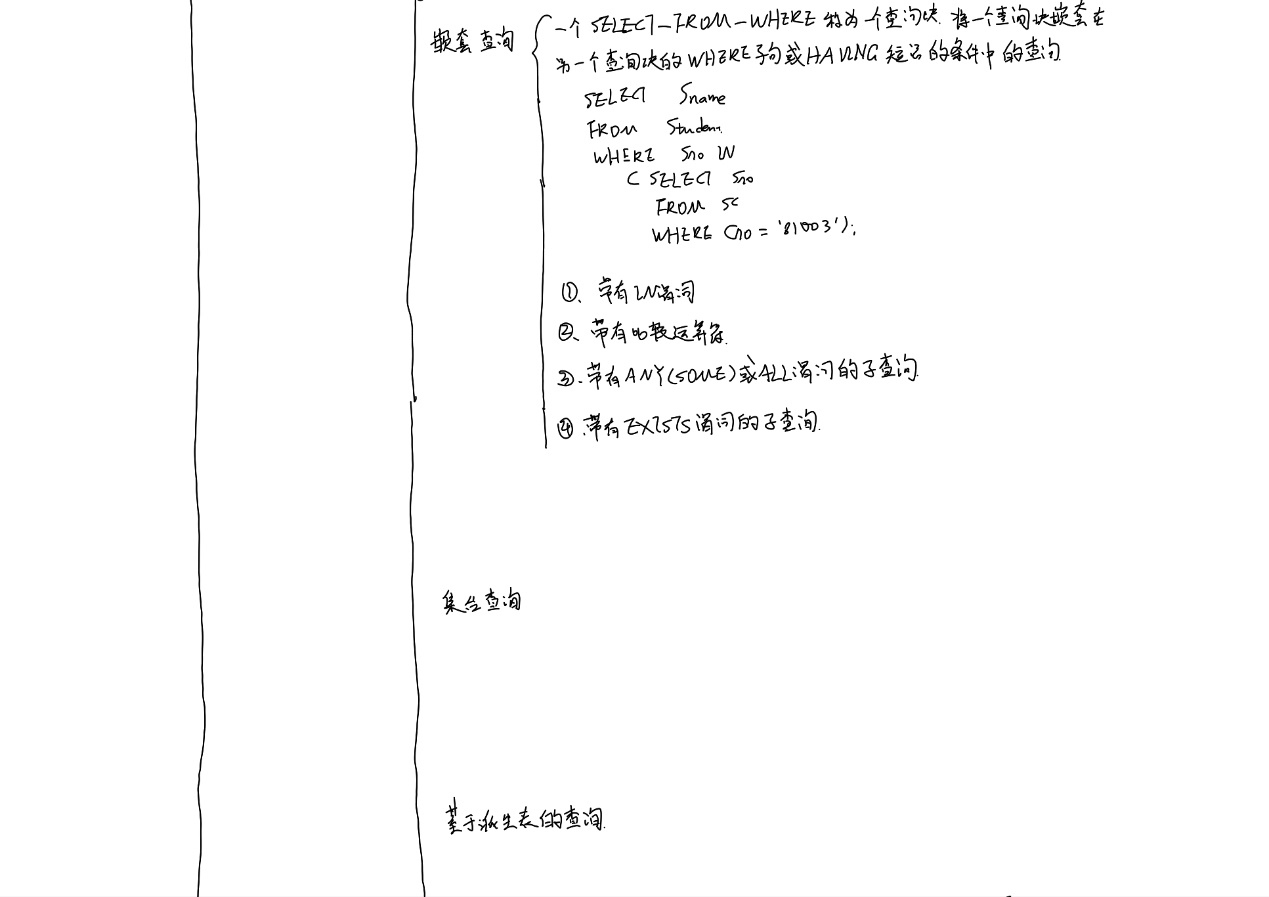 嵌套查询
一个SELECT-FROM-WHERE称为一个查询块.将一个查询块嵌套在
另一个查询块的WHERE子句或HAVING短语的条件中的查询.
SELECT Sname
FROM Student
WHERE Sno IN
( SELECT Sno
FROM SC
WHERE Cno = '81003');
①、带有IN谓词
②、带有比较运算符.
③.带有ANY(SOME)或ALL谓词的子查询.
④.带有EXISTS谓词的子查询.
集合查询
基于派生表的查询.